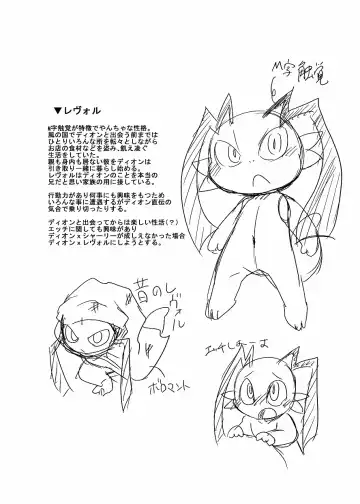 M字触覚
▼レヴォル
M字触覚が特徴でやんちゃな性格。
風の国でディオンと出会う前までは
ひとりいろんな所を転々としながら
お店の食材などを盗み、飢え凌ぐ
生活をしていた。
親も身内も居ない彼をディオンは
引き取り一緒に暮らし始める。
レヴォルはディオンのことを本当の
兄だと思い家族の用に接している。
行動力があり何事にも興味をもつため
いろんな事に遭遇するがディオン直伝の
気合で乗り切ったりする。
ディオンと出会ってからは楽しい性活(?)
エッチに関しても興味があり
ディオンxシャーリーが成しえなかった場合
ディオンxレヴォルにしようとする。
昔のレヴォル
ボロマント
エッチしよーよ